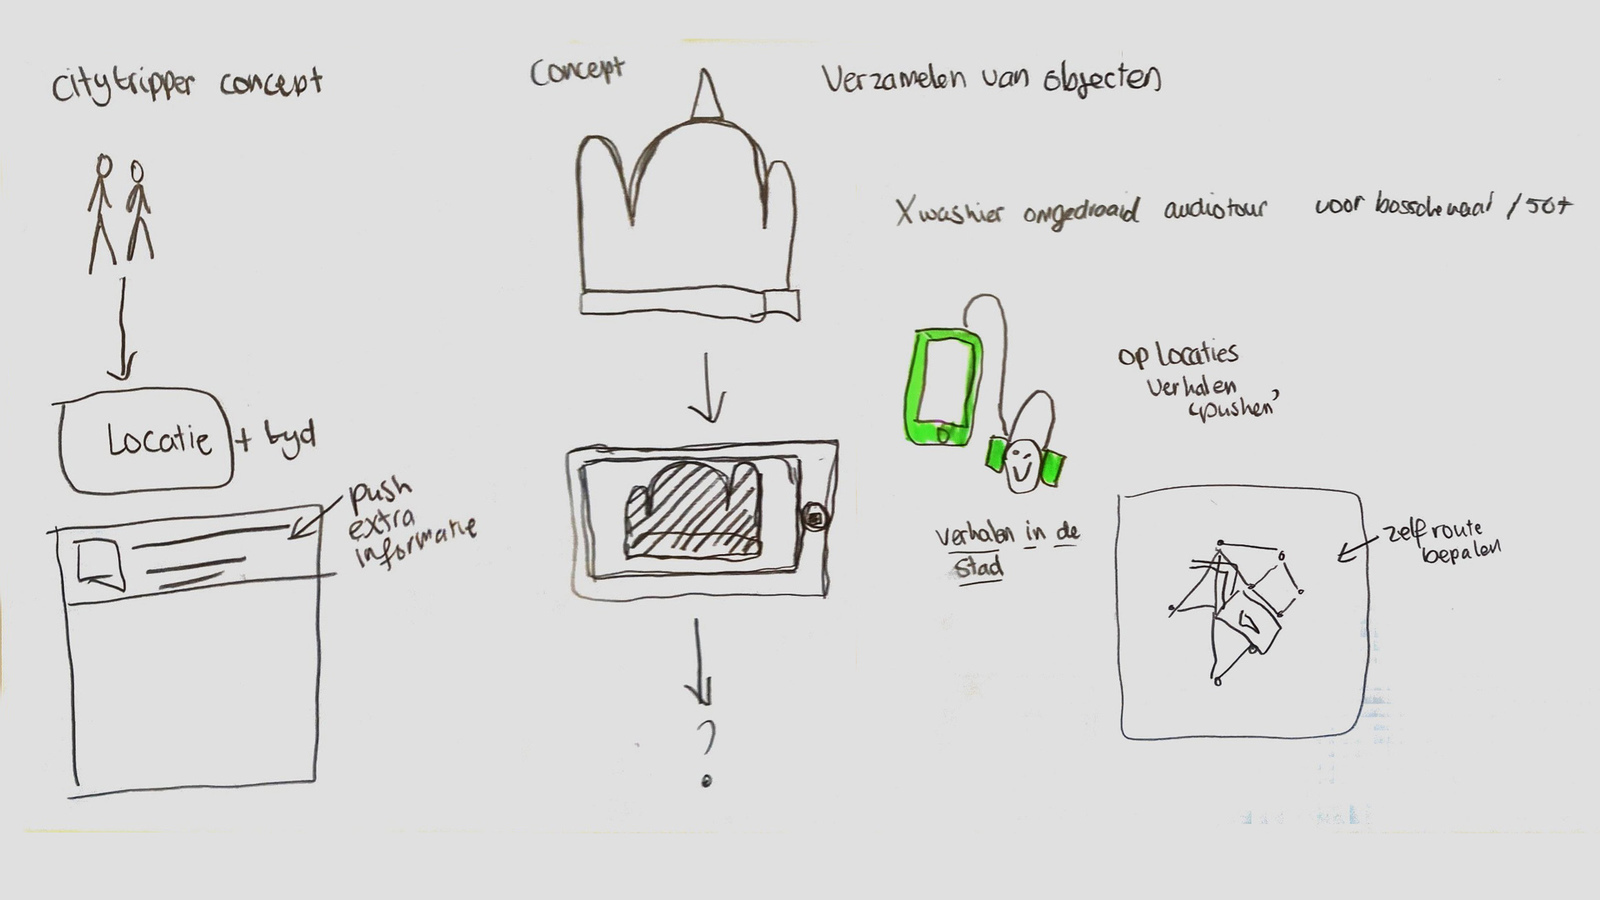 Citytripper concept
Locatie + tyd
push
extra
informatie
Concept
?
Verzamelen van objecten
X was hier omgedraaid audiotour voor bossche waar / 50+
op locaties
verhalen
'pushen'
verhalen in de
stad
zelf route
bepalen